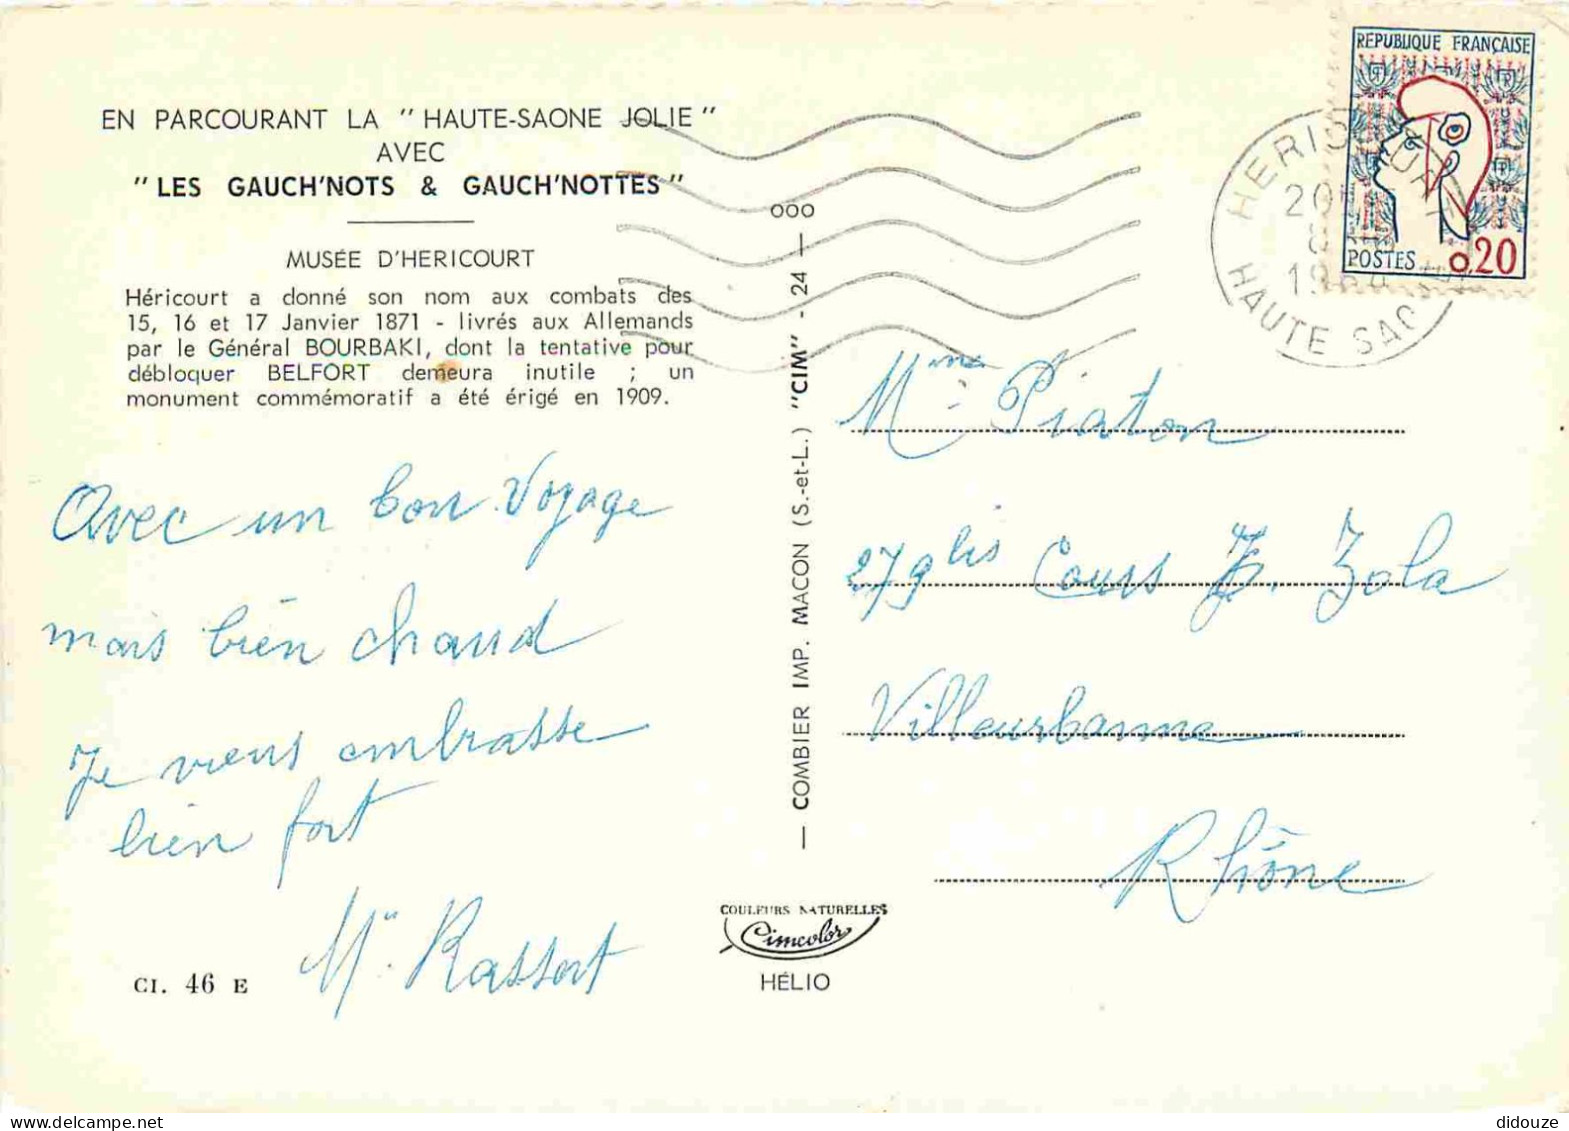 EN PARCOURANT LA " HAUTE-SAONE JOLIE "
AVEC
" LES GAUCH'NOTS & GAUCH'NOTTES "
MUSÉE D'HERICOURT
Héricourt a donné son nom aux combats des
15, 16 et 17 Janvier 1871 - livrés aux Allemands
par le Général BOURBAKI, dont la tentative pour
débloquer BELFORT demeura inutile ; un
monument commémoratif a été érigé en 1909.
Avec un bon Voyage
mais bien chaud
Je viens embrasse
bien fort
CI. 46 E
000
— COMBIER IMP. MACON (S.-et-L.) "CIM" - 24 —
COULEURS NATURELLES
Cimcolor
HÉLIO
REPUBLIQUE FRANÇAISE
POSTES 0,20
HERICOURT
HAUTE SAONE
Mme Piaton
279 bis Cours E. Zola
Villeurbanne
Rhône
didouze